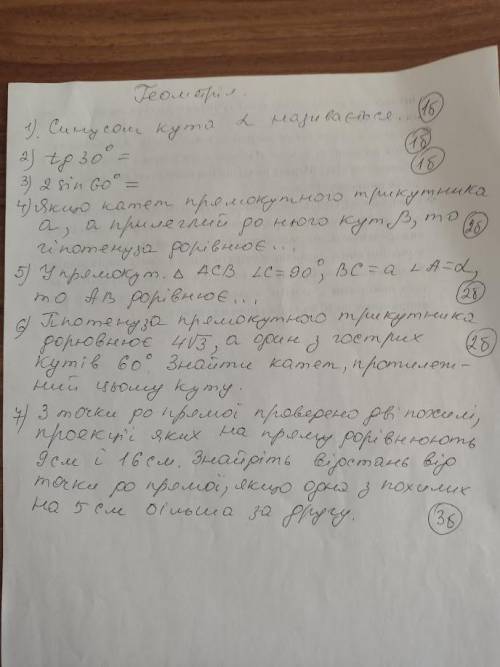 Геометрія.
1). Синусом кута α називається... 1б
2) tg 30° = 1б
3) 2 sin 60° = 1б
4) Якщо катет прямокутного трикутника
a, а прилеглий до нього кут β, то 2б
гіпотенуза дорівнює...
5) У прямокут. Δ ACB ∠C = 90°, BC = a ∠A = α,
то AB дорівнює... 2б
6) Гіпотенуза прямокутного трикутника
дорювнює 4√3, а один з гострих 2б
кутів 60°. Знайти катет, протилеж-
ний цьому куту.
7) З точки до прямої проведено дві похилі,
проекції яких на пряму дорівнюють
9см і 16см. Знайдіть відстань від
точки до прямої, якщо одна з похилих
на 5 см більша за другу. 3б